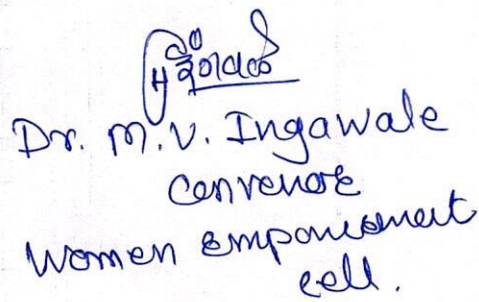 Dr. M.V. Ingawale
Convenore
Women Empowerment
cell.